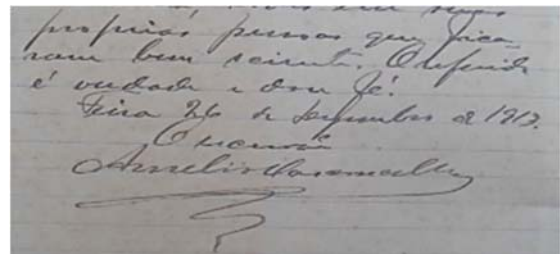 proprias pessoas que fica
ram bem sciente. O referido
é verdade e dou fé.
Feira 26 de Setembro de 1913.
O escrivão